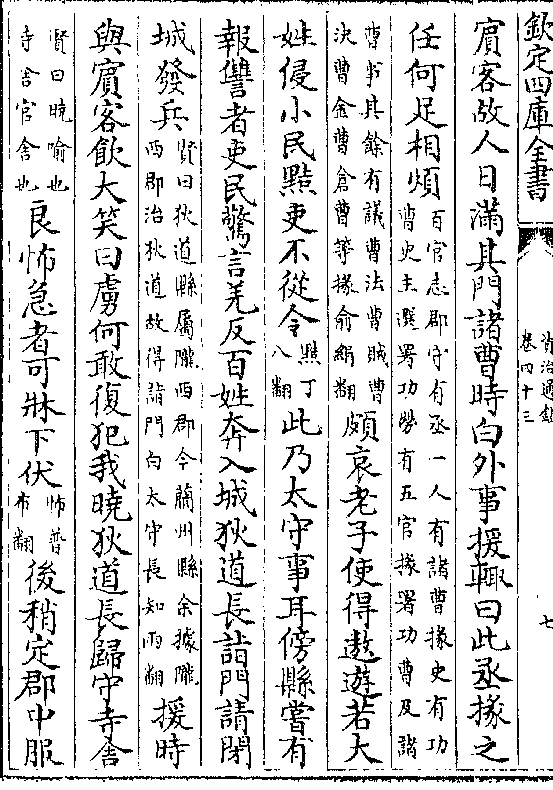 欽定四庫全書
資治通鑑
卷四十三
七
賓客故人日滿其門諸曹時白外事援輒曰此丞掾之
任何足相煩
百官志郡守有丞一人有諸曹掾史有功
曹史主選署功勞有五官掾署功曹及諸
曹事其餘有議曹法曹賊曹
決曹金曹倉曹等掾俞絹翻
頗哀老子使得遨遊若大
姓侵小民黠吏不從令
黠丁
八翻
此乃太守事耳傍縣嘗有
報讐者吏民驚言羌反百姓奔入城狄道長詣門請閉
城發兵
賢曰狄道縣屬隴西郡今蘭州縣余據隴
西郡治狄道故得詣門白太守長知兩翻
援時
與賓客飲大笑曰虜何敢復犯我曉狄道長歸守寺舍
賢曰曉喻也
寺舍官舍也
良怖急者可牀下伏
怖普
布翻
後稍定郡中服